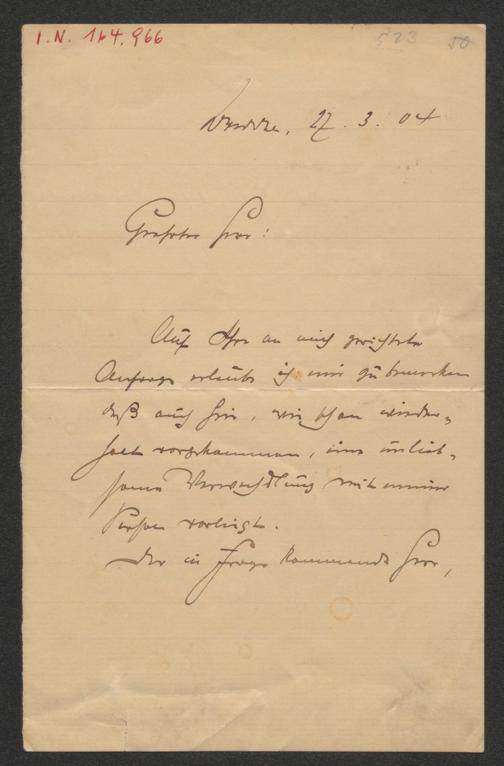 I.N. 164.966
523 50
27. 3. 04
Geehrter Herr:
Auf Ihre an mich gerichtete
Anfrage erlaube ich mir zu bemerken
daß auch hier, wie schon wieder-
holt vorgekommen, eine unlieb-
same Verwechslung mit meiner
Person vorliegt.
Der in Frage kommende Herr,